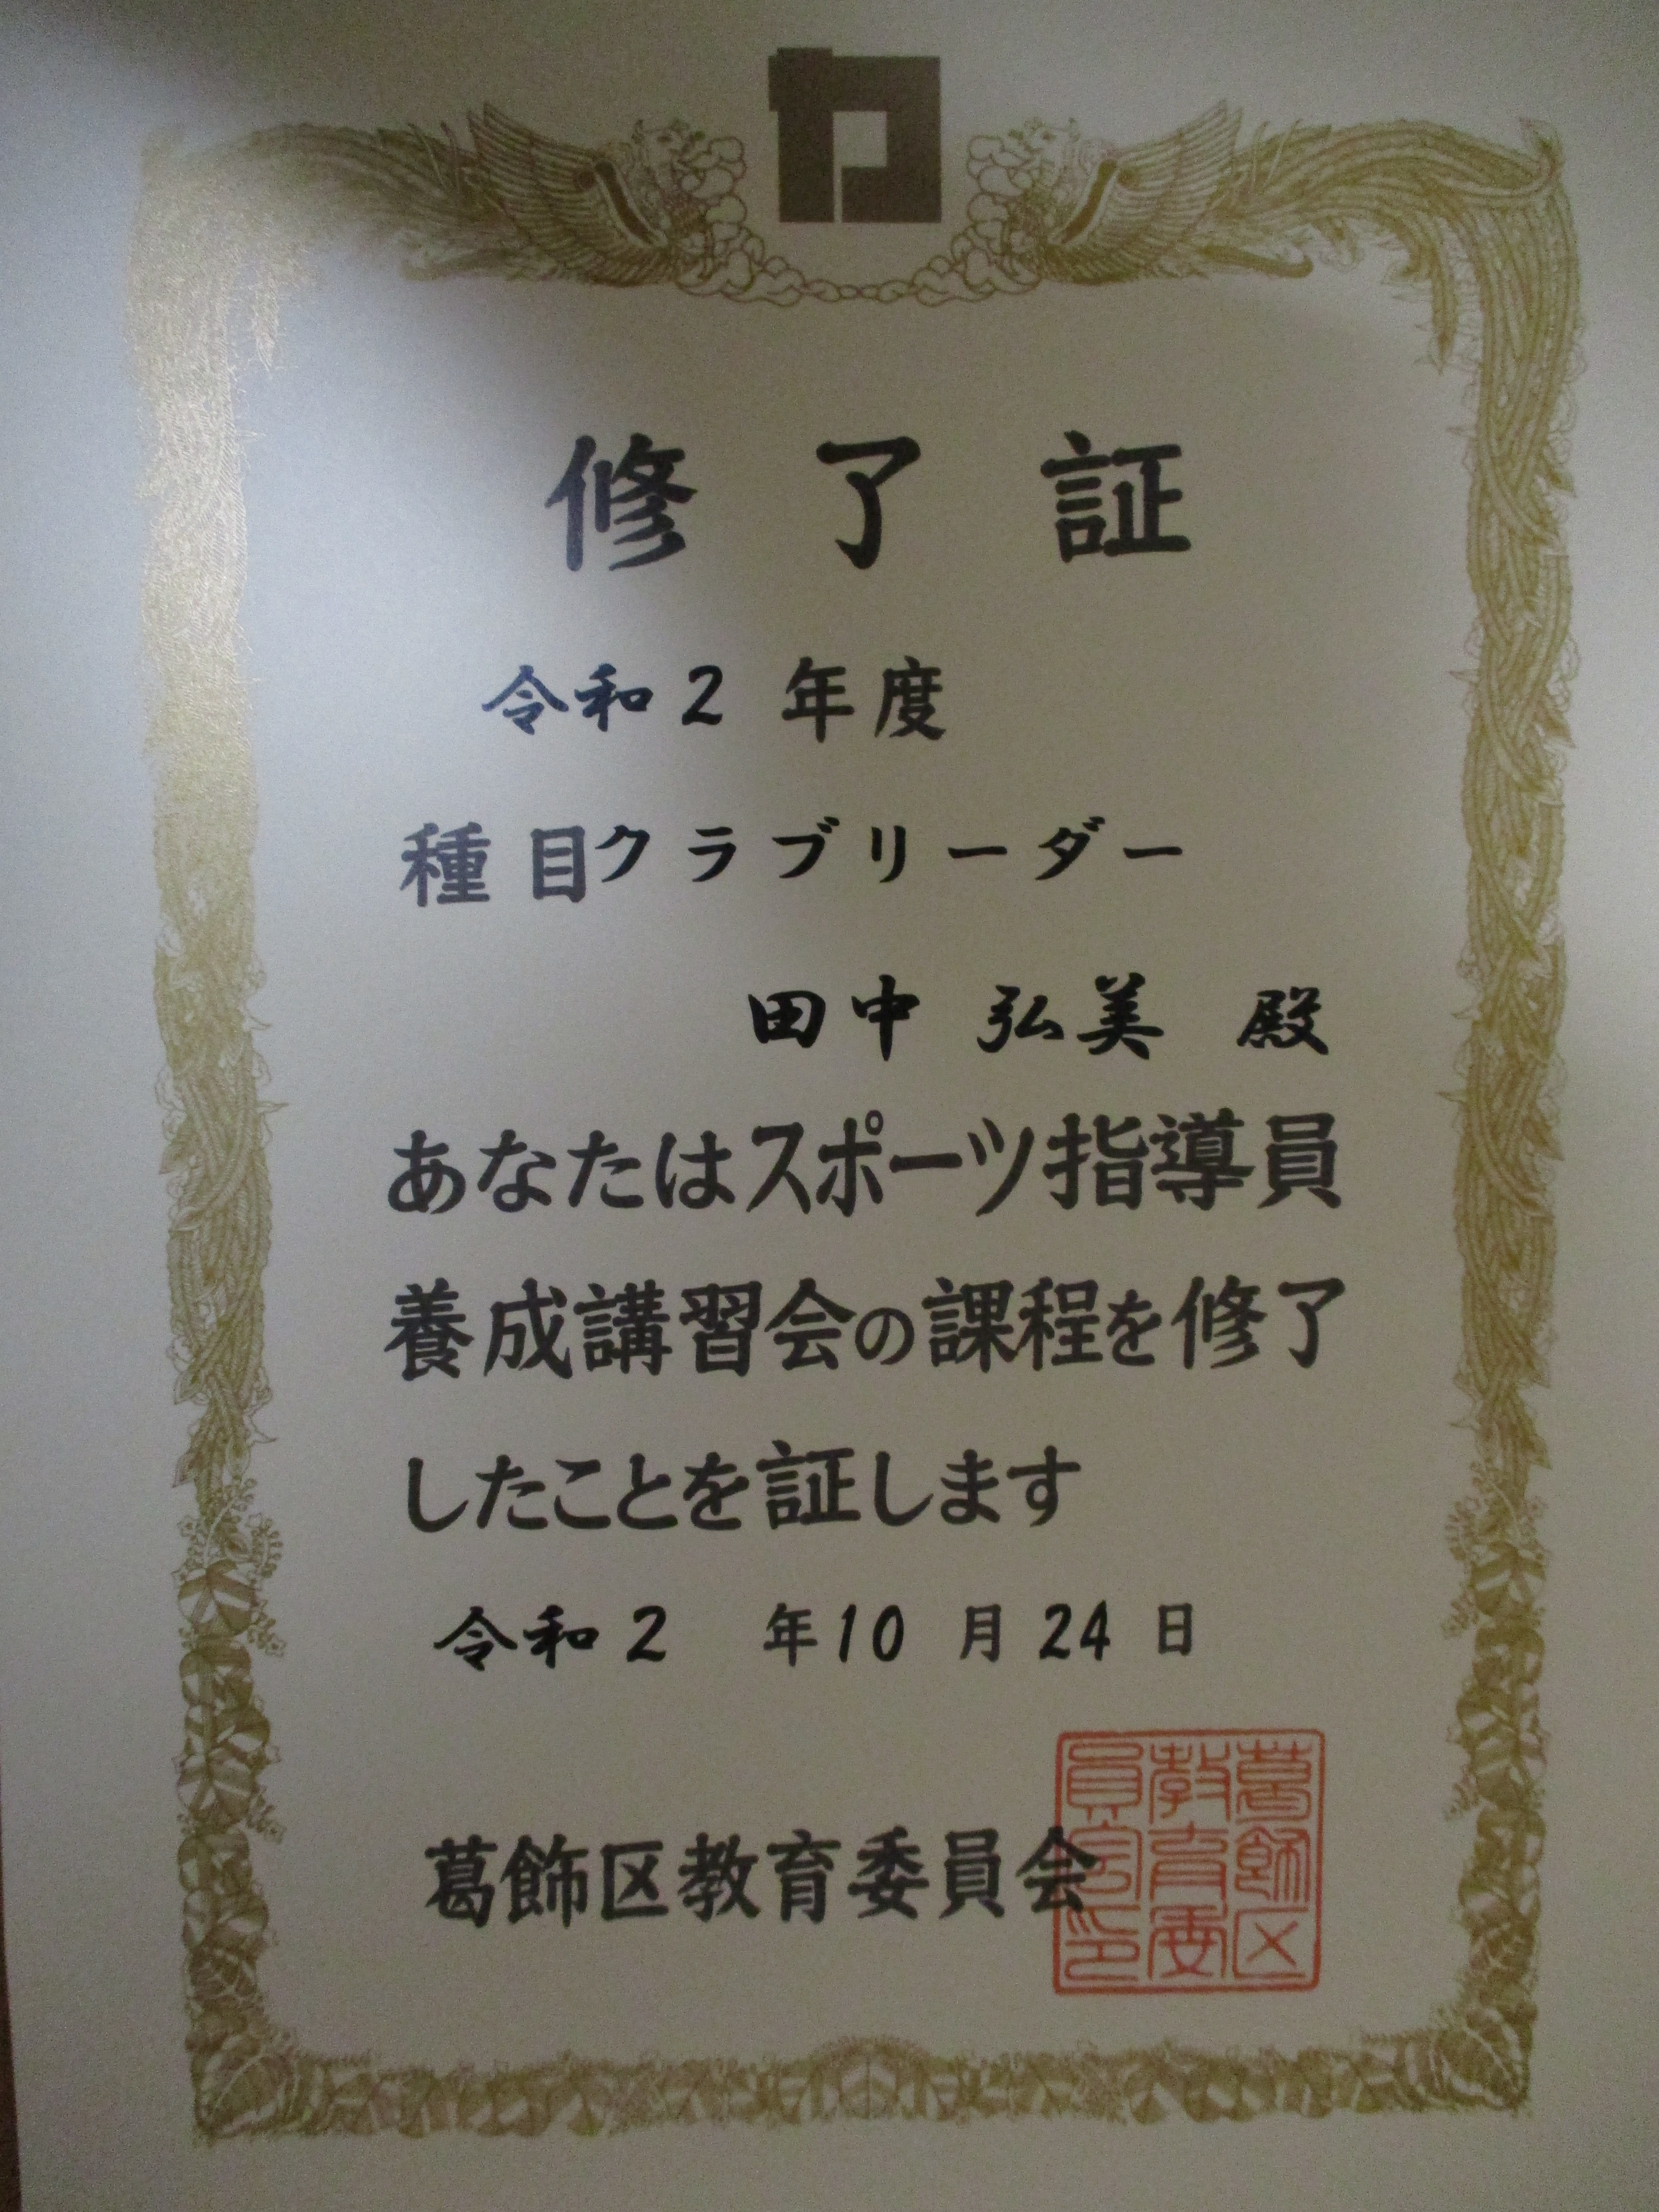 修了証
令和2年度
種目クラブリーダー
田中 弘美 殿
あなたはスポーツ指導員
養成講習会の課程を修了
したことを証します
令和2年10月24日
葛飾区教育委員会
葛飾区
教育委
員会印